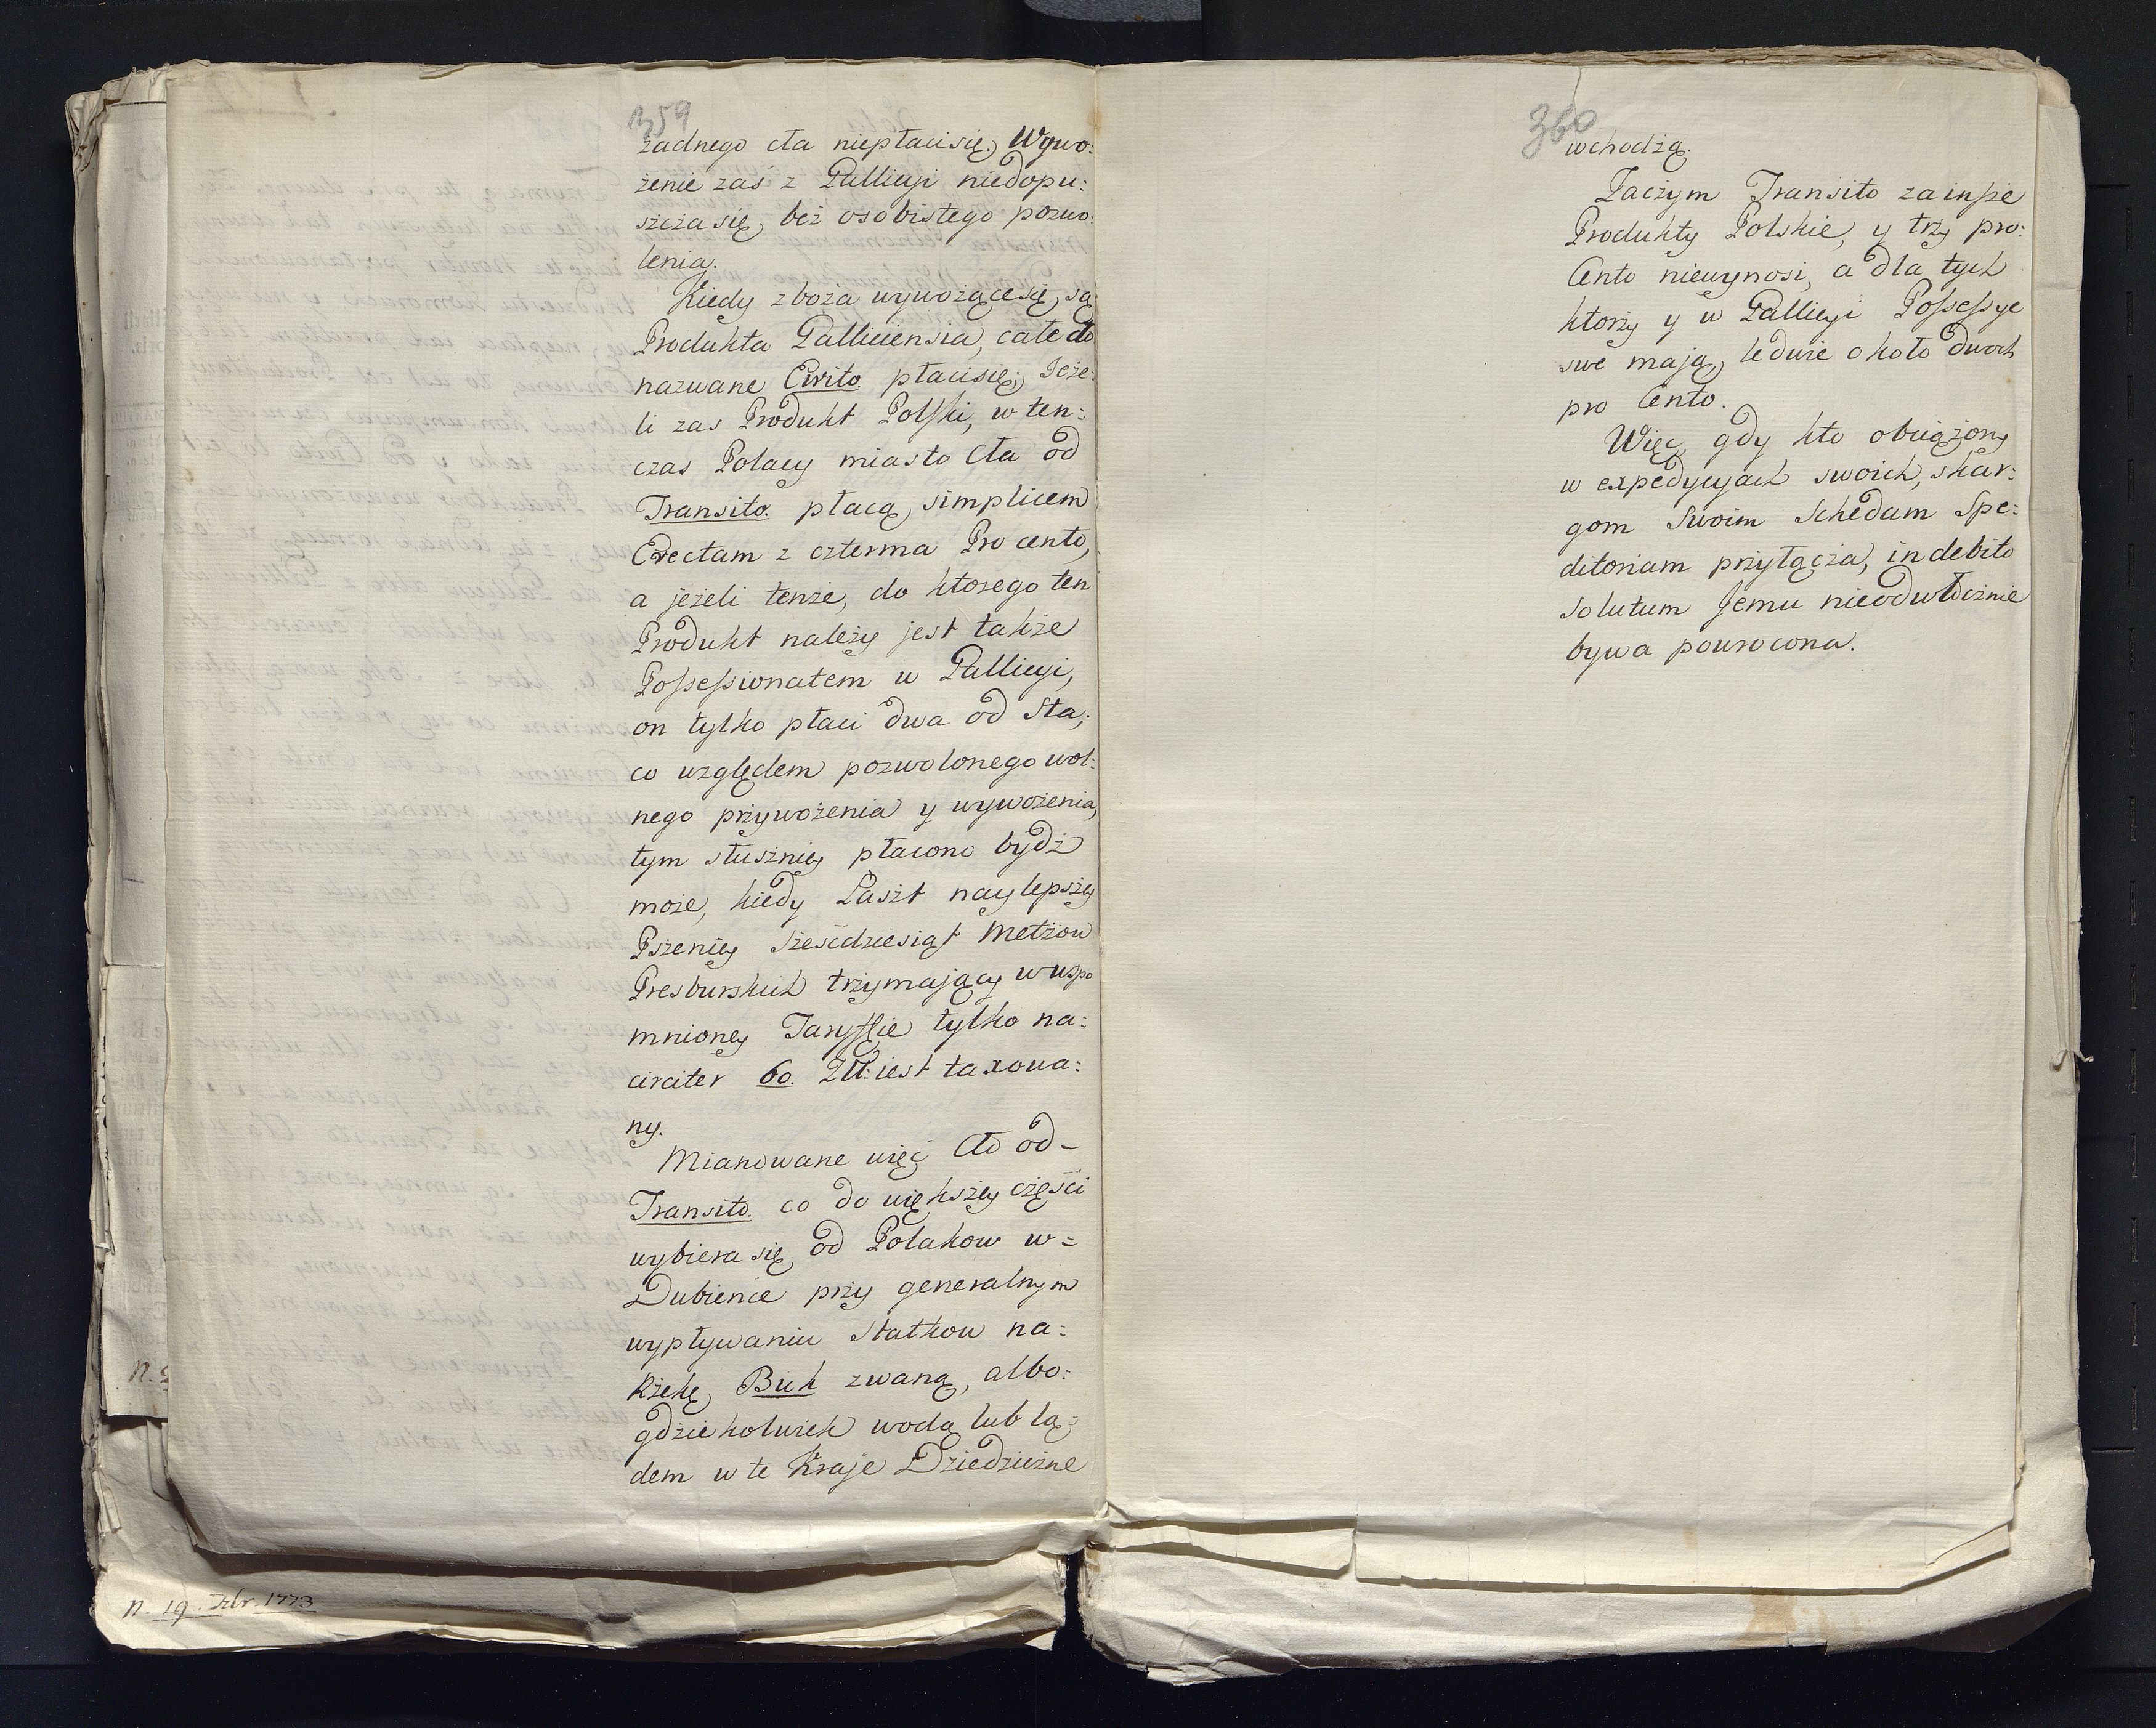 359
żadnego cła niepłaci się, Wywo:
żenie zaś z Gallicyi niedopu:
szcza się, bez osobistego pozwo:
lenia.
Kiedy zboża wywożące się, są
Produkta Galliciensia, całe cło
nazwane Exito płaci się; Jeże:
li zas Produkt Polski, w ten:
czas Polacy miasto Cła od
Transito. płacą simplicem
Evectam z czterma Pro cento,
a jeżeli tenże, do ktorego ten
Produkt należy jest także
Possessionatem w Gallicyi,
on tylko płaci dwa od Sta,
co względem pozwolonego wol:
nego przywożenia y wywożenia,
tym słuszniey płacono bydź
może, kiedy Łaszt naylepszey
Pszenicy sześćdziesiąt Metzow
Presburskich trzymający w wspo
mnioney Taryffie tylko na:
circiter 60. Zł: iest taxowa:
ny.
Mianowane więc Cło od-
Transito. co do większey części
wybiera się od Polakow w=
Dubience przy generalnym
wypływaniu Statkow na:
Rzekę, Buk zwaną, albo:
gdziekolwiek wodą lub lą:
dem w te Kraje Dziedziczne
n. 19. Xbr. 1773
360
wchodzą.
Zaczym Transito za insze
Produkty Polskie, y trzy pro:
Cento niewynosi, a dla tych
ktorzy y w Gallicyi Possessye
swe mają, ledwie około dwoch
pro Cento.
Więc, gdy kto obciążony
w expedycyach swoich, skar:
gom swoim Schedam Spe:
ditoriam przyłącza, indebito
solutum Jemu nieodwłocznie
bywa powrocona.